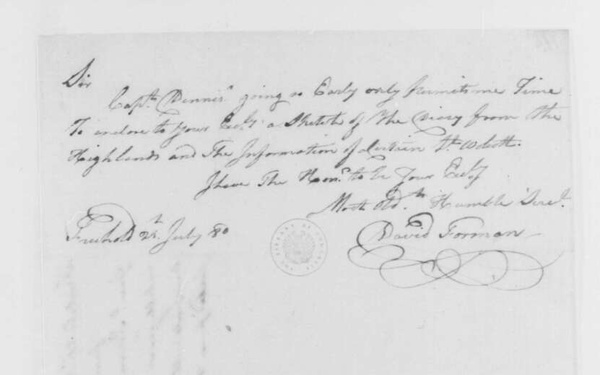 Sir
Capt. Dennis' going so Early only permits me Time
To inclose to your Excy. a Sketch of The Diary from the
Highlands and The Information of
I have The Honr. to be Your Excy.
Most Obdt. Humble Servt.
Freehold July 80
David Forman